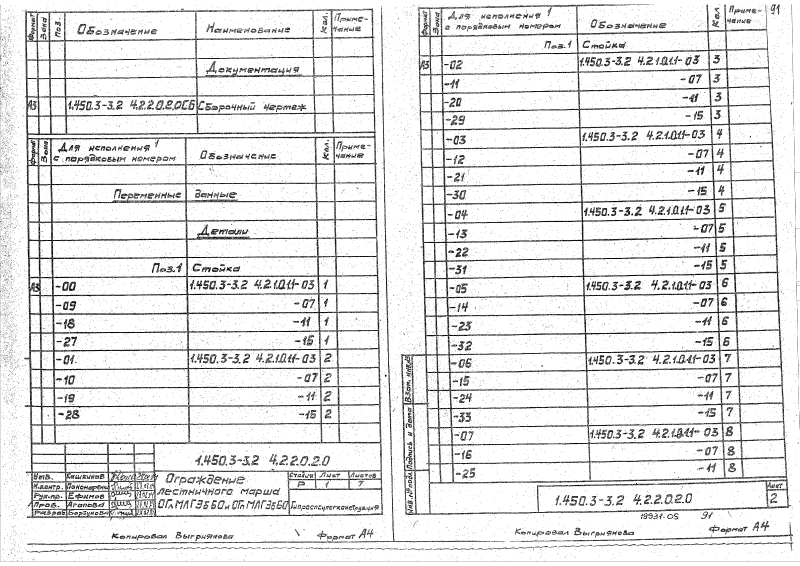 Формат Зона Поз. Обозначение Наименование Кол. Приме-чание
Документация
А3 1.450.3-3.2 4.2.2.0.2.0СБ Сборочный чертеж
Формат Зона Для исполнения 1 с порядковым номером Обозначение Кол. Приме-чание
Переменные данные
Детали
Поз.1 Стойка
А3 -00 1.450.3-3.2 4.2.1.0.1.1-03 1
-09 -07 1
-18 -11 1
-27 -15 1
-01 1.450.3-3.2 4.2.1.0.1.1-03 2
-10 -07 2
-19 -11 2
-28 -15 2
1.450.3-3.2 4.2.2.0.2.0
Утв. Кашкинов
Н.контр. Пономарева
Рук.пр. Ефимов
Пров. Агапова
Разраб Борзунова
Ограждение
лестничного марша
Стадия Лист Листов
Р 1 7
Гипроспецлегконструкция
Копировал Выгрианова Формат А4
91
Формат Зона Для исполнения 1 с порядковым номером Обозначение Кол Приме-чание
Поз.1 Стойка
А3 -02 1.450.3-3.2 4.2.1.0.1.1-03 3
-11 -07 3
-20 -11 3
-29 -15 3
-03 1.450.3-3.2 4.2.1.0.1.1-03 4
-12 -07 4
-21 -11 4
-30 -15 4
-04 1.450.3-3.2 4.2.1.0.1.1-03 5
-13 -07 5
-22 -11 5
-31 -15 5
-05 1.450.3-3.2 4.2.1.0.1.1-03 6
-14 -07 6
-23 -11 6
-32 -15 6
-06 1.450.3-3.2 4.2.1.0.1.1-03 7
-15 -07 7
-24 -11 7
-33 -15 7
-07 1.450.3-3.2 4.2.1.0.1.1-03 8
-16 -07 8
-25 -11 8
Инв.№ подл. Подпись и дата Взам. инв.№
1.450.3-3.2 4.2.2.0.2.0
Лист
2
18931-05 91
Копировал Выгрианова Формат А4